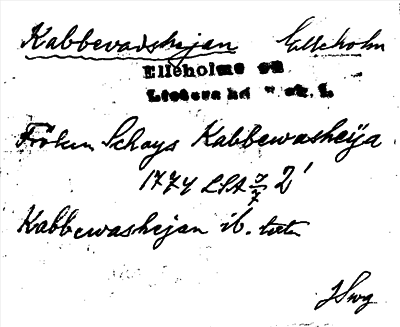 Kabbevashejan Elleholm
Elleholms sn
Listers hd Blek. l.
Fröken Schoys Kabbewasheÿa
1774 LSA 2/7 2'
Kabbewashejan ib. titeln
JSwg